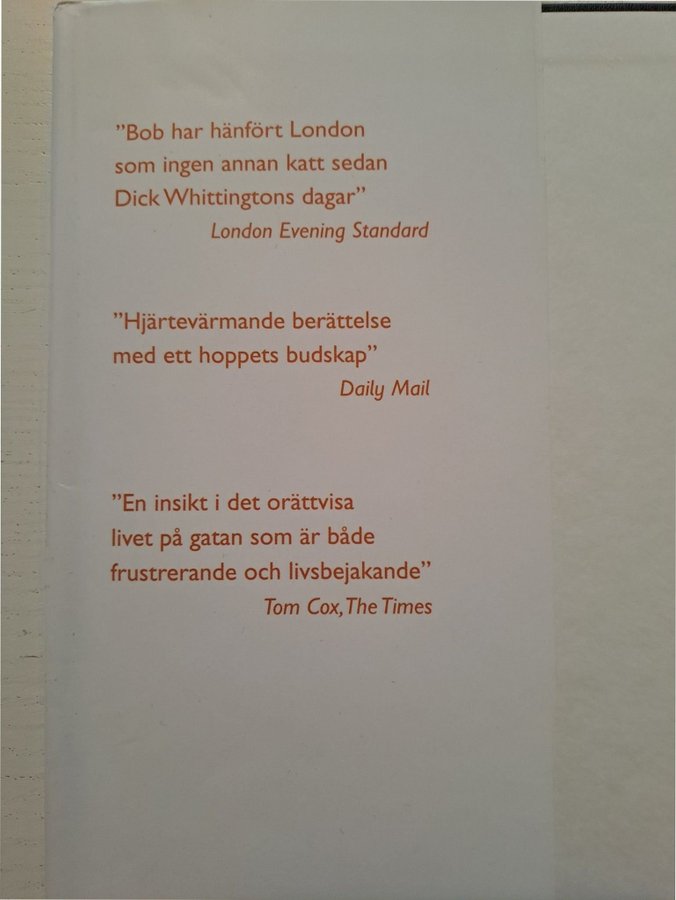 ”Bob har hänfört London
som ingen annan katt sedan
Dick Whittingtons dagar”
London Evening Standard
”Hjärtevärmande berättelse
med ett hoppets budskap”
Daily Mail
”En insikt i det orättvisa
livet på gatan som är både
frustrerande och livsbejakande”
Tom Cox, The Times